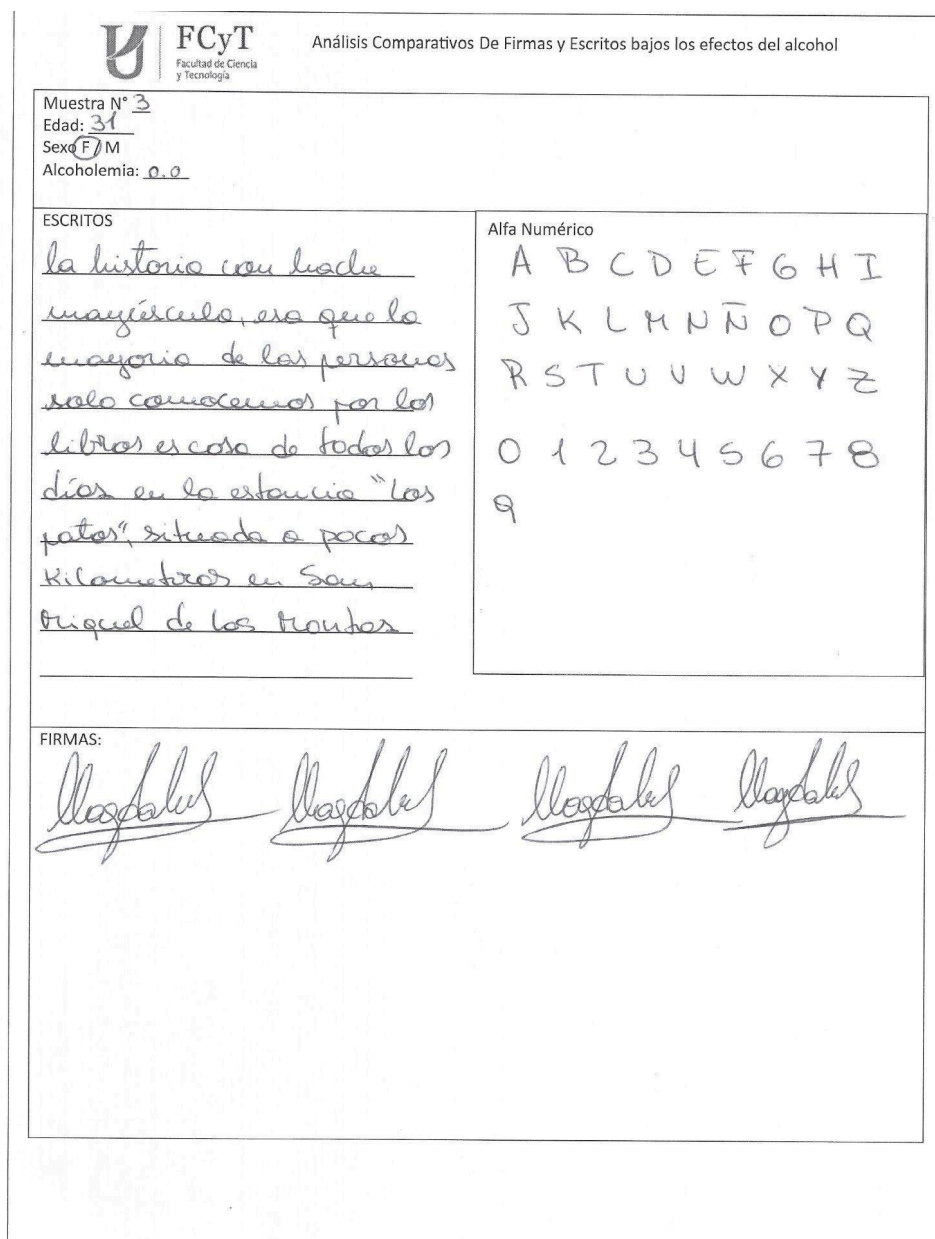 FCyT
Facultad de Ciencia
y Tecnología
Análisis Comparativos De Firmas y Escritos bajos los efectos del alcohol
Muestra N° 3
Edad: 31
Sexo F / M
Alcoholemia: 0.0
ESCRITOS
la historia con hache
mayúscula, esa que la
mayoria de las personas
solo conocemos por los
libros es cosa de todos los
días en la estancia "Los
patos", situada a pocos
Kilometros en San
Miguel de Los Montes
Alfa Numérico
A B C D E F G H I
J K L M N Ñ O P Q
R S T U V W X Y Z
0 1 2 3 4 5 6 7 8
9
FIRMAS: